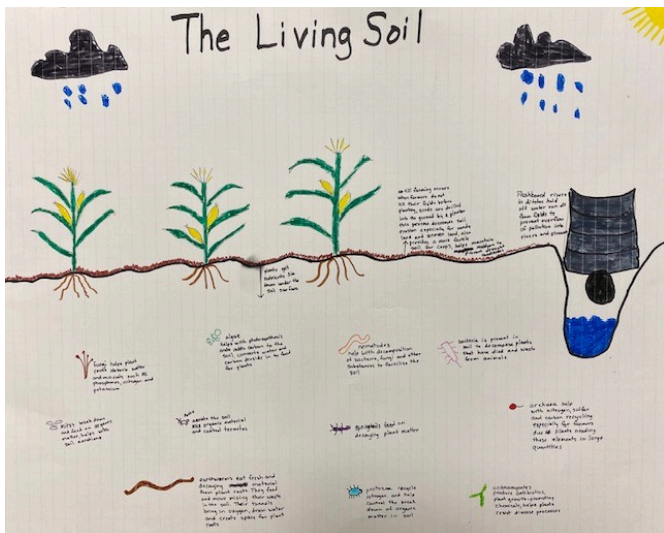 The Living Soil
no till farming occurs
when farmers do not
till their fields before
planting, seeds are drilled
into the ground by a planter
this process decreases soil
erosion especially for sandy
land and uneven land, also
provides a more fertile
soil for crops, helps maintain
Flashboard risers
in ditches hold
off water run off
from fields to
prevent overflow
of pollution into
rivers and
plants get
nutrients
down under the
soil surface
fungi helps plant
roots obtain water
and minerals such as
phosphorus, nitrogen and
potassium
algae
helps with photosynthesis
and adds carbon to the
soil, converts water and
carbon dioxide in to food
for plants
nematodes
help with decomposition
of bacteria, fungi and other
substances to fertilize the
soil
bacteria is present in
soil to decompose plants
that have died and waste
from animals
mites break down
and feed on organic
matter, helps with
soil
aerate the soil
mix organic material
and control termites
springtails feed on
decaying plant matter
archaea help
with nitrogen, sulfur
and carbon recycling
especially for farmers
due to plants needing
these elements in large
quantities
earthworms eat fresh and
decaying material
from plant roots. They feed
and move mixing their waste
in the soil. Their tunnels
bring in oxygen, drain water
and create space for plant
roots
protozoa recycle
nitrogen and help
control the break
down of organic
matter in soil
actinomycetes
produce antibiotics,
plant growth-promoting
chemicals, helps plants
resist disease processes